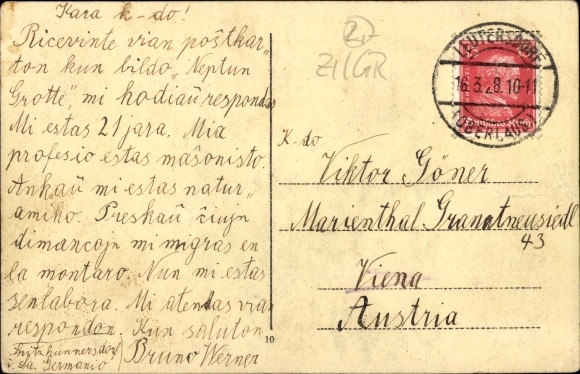 Kara k-do!
Ricevinte vian poŝtkar„
ton kun bildo „Neptun
Grotte", mi hodiaŭ respondas
Mi estas 21 jara. Mia
profesio estas maŝonisto.
Ankaŭ mi estas natur„
amiko. Preskaŭ ĉiujn
dimanĉojn mi migras en
la montaro. Nun mi estas
senlabora. Mi atendas vian
respondon. Kun saluton
Bruno Werner
Fritz Kunnersdorf
i. Sa. Germanio
10
2)-
ZI/GR
LEUTERSDORF
16.3.28.10-11
(OBERLAUS.)
K-do
Viktor Göner
Marienthal Gramatneusiedl
43
Viena
Austria